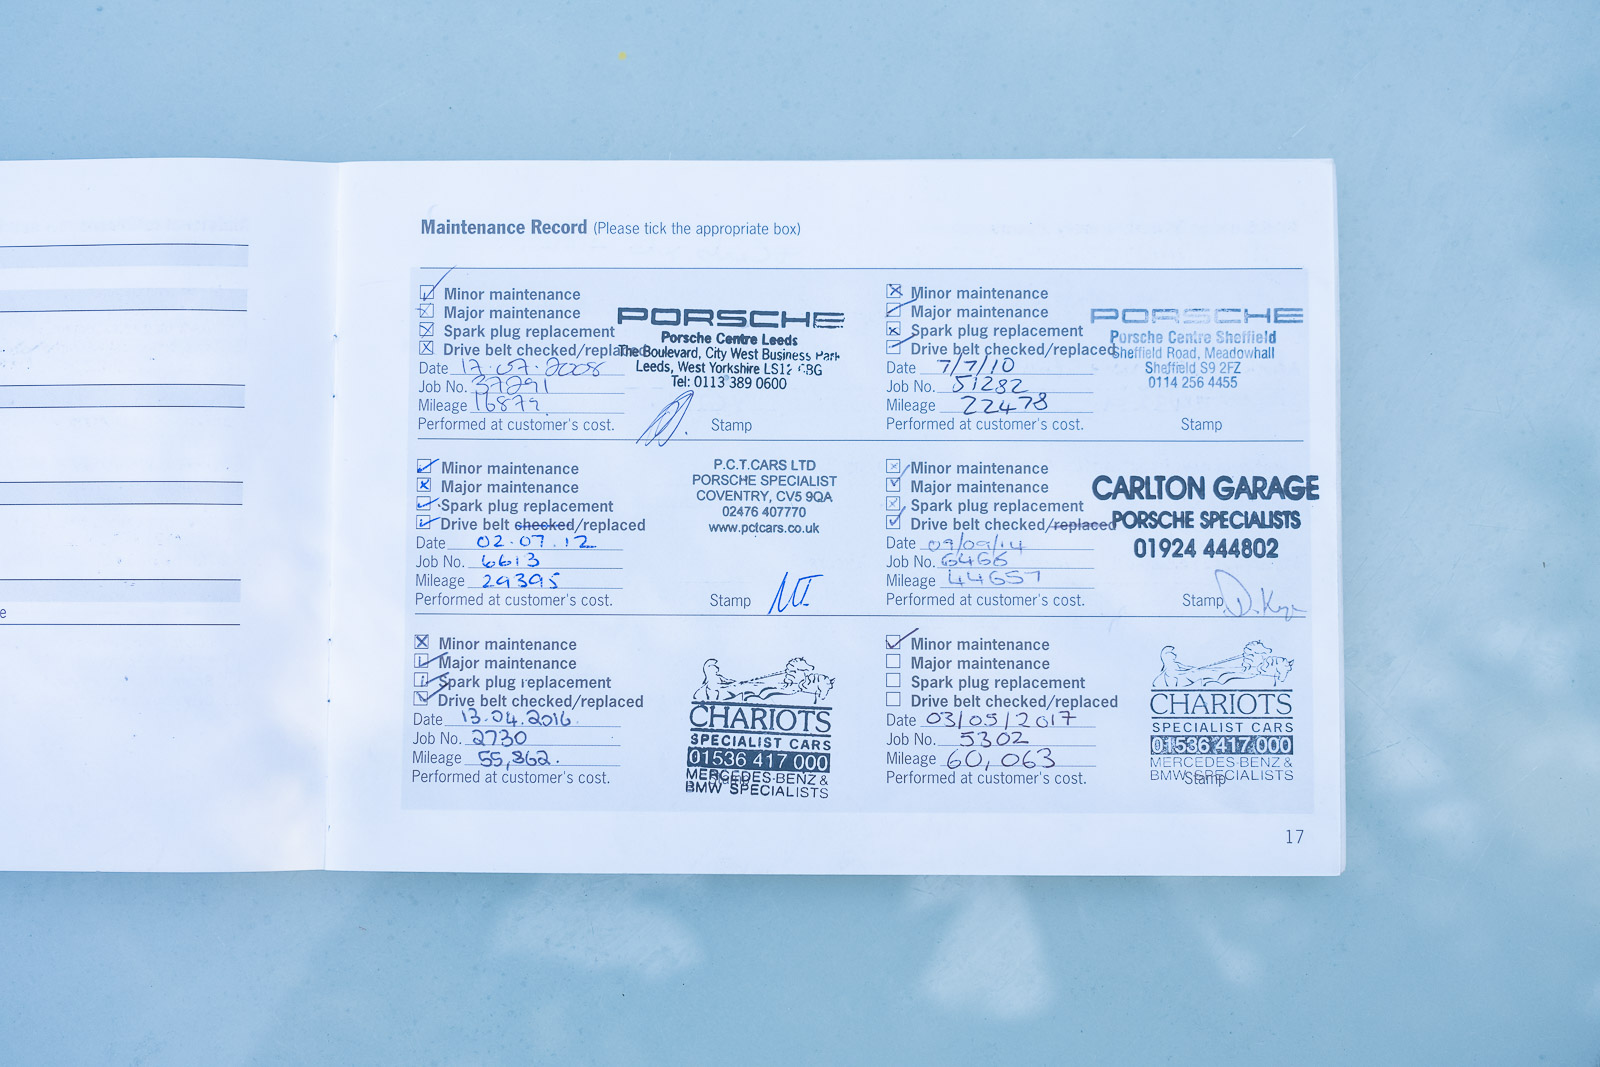 Maintenance Record (Please tick the appropriate box)
Minor maintenance
Major maintenance
Spark plug replacement
Drive belt checked/replaced
Date 17.07.2008
Job No. 37291
Mileage 16879
Performed at customer's cost.
PORSCHE
Porsche Centre Leeds
The Boulevard, City West Business Park
Leeds, West Yorkshire LS12 6BG
Tel: 0113 389 0600
Stamp
Minor maintenance
Major maintenance
Spark plug replacement
Drive belt checked/replaced
Date 7/7/10
Job No. 51282
Mileage 22478
Performed at customer's cost.
PORSCHE
Porsche Centre Sheffield
Sheffield Road, Meadowhall
Sheffield S9 2FZ
0114 256 4455
Stamp
Minor maintenance
Major maintenance
Spark plug replacement
Drive belt checked/replaced
Date 02.07.12
Job No. 6613
Mileage 29395
Performed at customer's cost.
P.C.T.CARS LTD
PORSCHE SPECIALIST
COVENTRY, CV5 9QA
02476 407770
www.pctcars.co.uk
Stamp
Minor maintenance
Major maintenance
Spark plug replacement
Drive belt checked/replaced
Date 09/09/14
Job No. 6466
Mileage 44657
Performed at customer's cost.
CARLTON GARAGE
PORSCHE SPECIALISTS
01924 444802
Stamp
Minor maintenance
Major maintenance
Spark plug replacement
Drive belt checked/replaced
Date 13.04.2016
Job No. 2730
Mileage 55,862.
Performed at customer's cost.
CHARIOTS
SPECIALIST CARS
01536 417 000
MERCEDES-BENZ &
BMW SPECIALISTS
Stamp
Minor maintenance
Major maintenance
Spark plug replacement
Drive belt checked/replaced
Date 03/05/2017
Job No. 5302
Mileage 60,063
Performed at customer's cost.
CHARIOTS
SPECIALIST CARS
01536 417 000
MERCEDES-BENZ &
BMW SPECIALISTS
Stamp
17